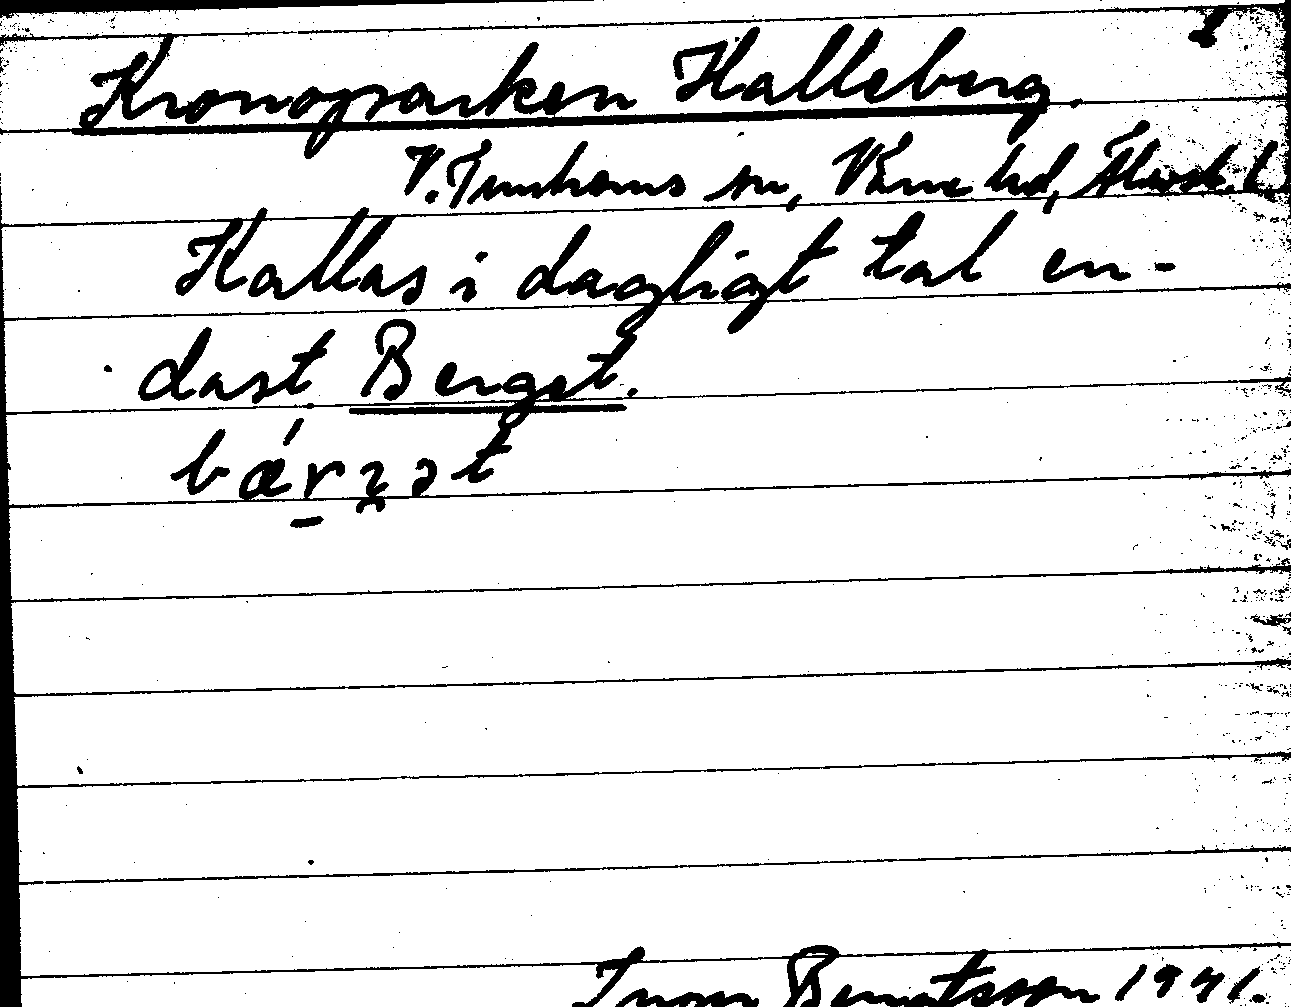 1
Kronoparken Halleberg.
V. Tunhems sn, Väne hd, Älvsb. l.
Kallas i dagligt tal en-
dast Berget.
bǽr̠ʒ̑ət
Ivar Berntsson 1941.